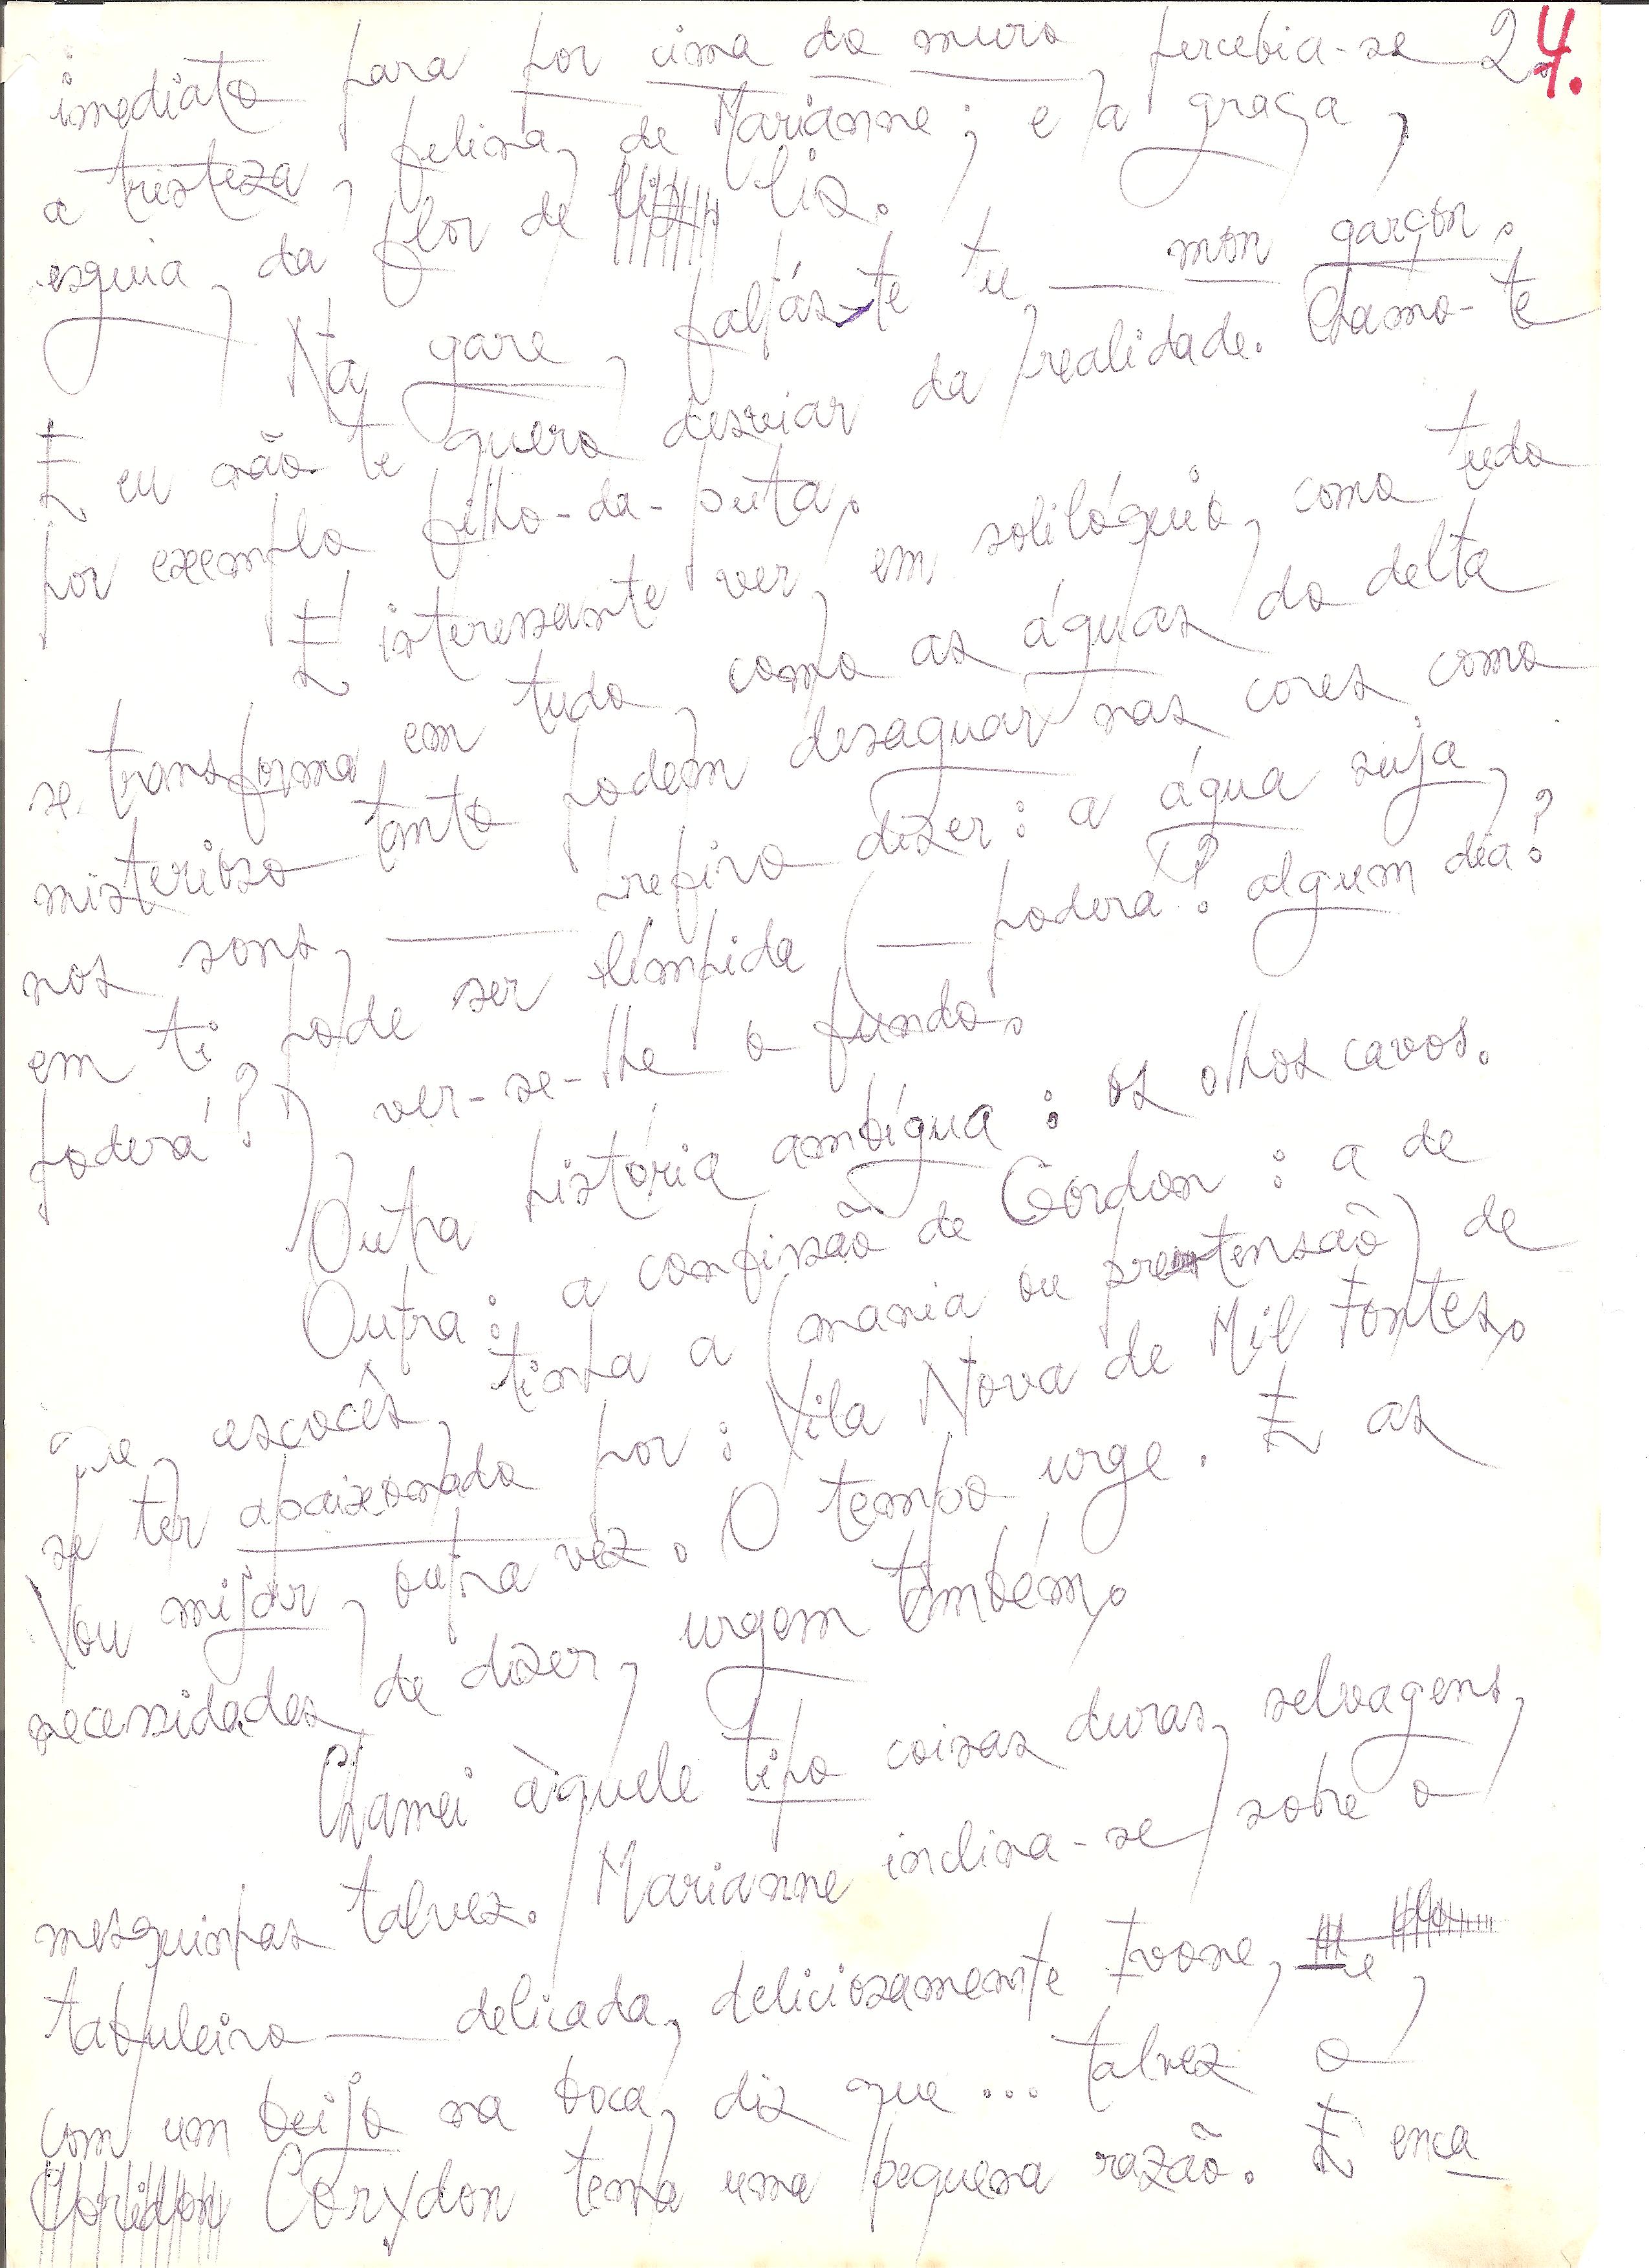 24.
imediato para por cima do muro percebia-se
a tristeza, felina, de Marianne; e a graça,
esguia, da flor de lis.
Na gare, faltás-te tu — mon garçon.
E eu não te quero desviar da realidade. Chamo-te
por exemplo filho-da-puta.
É interessante ver, em solilóquio, como tudo
se transforma em tudo, como as águas do delta
misterioso tanto podem desaguar nas cores como
nos sons, — prefiro dizer: a água suja,
em ti, pode ser límpida (— poderá? algum dia?
poderá?) ver-se-lhe o fundo.
Outra história ambígua: os olhos cavos.
Outra: a confissão de Gordon: a de
que, escocês, tinha a (mania ou pretensão) de
se ter apaixonado por: Vila Nova de Mil Fontes.
Vou mijar, outra vez. O tempo urge. E as
necessidades de dizer, urgem também.
Chamei àquele tipo coisas duras, selvagens,
mesquinhas talvez. Marianne inclina-se sobre o
tabuleiro — delicada, deliciosamente Ivone, e,
com um beijo na boca, diz que... talvez o
Corydon tenha uma pequena razão. E enca